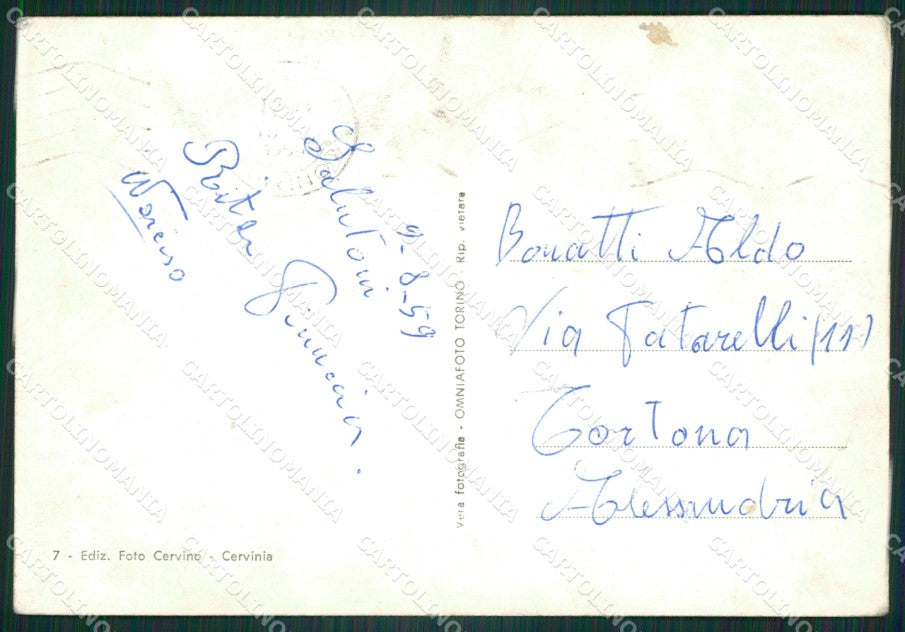 9-8-59
Salutoni
Rita Pinuccia.
Narciso
Bonatti Aldo
Via Tatarelli (11)
Tortona
Alessandria
vera fotografia - OMNIAFOTO TORINO Rip. vietata
7 - Ediz. Foto Cervino - Cervinia
CARTOLINOMANIA